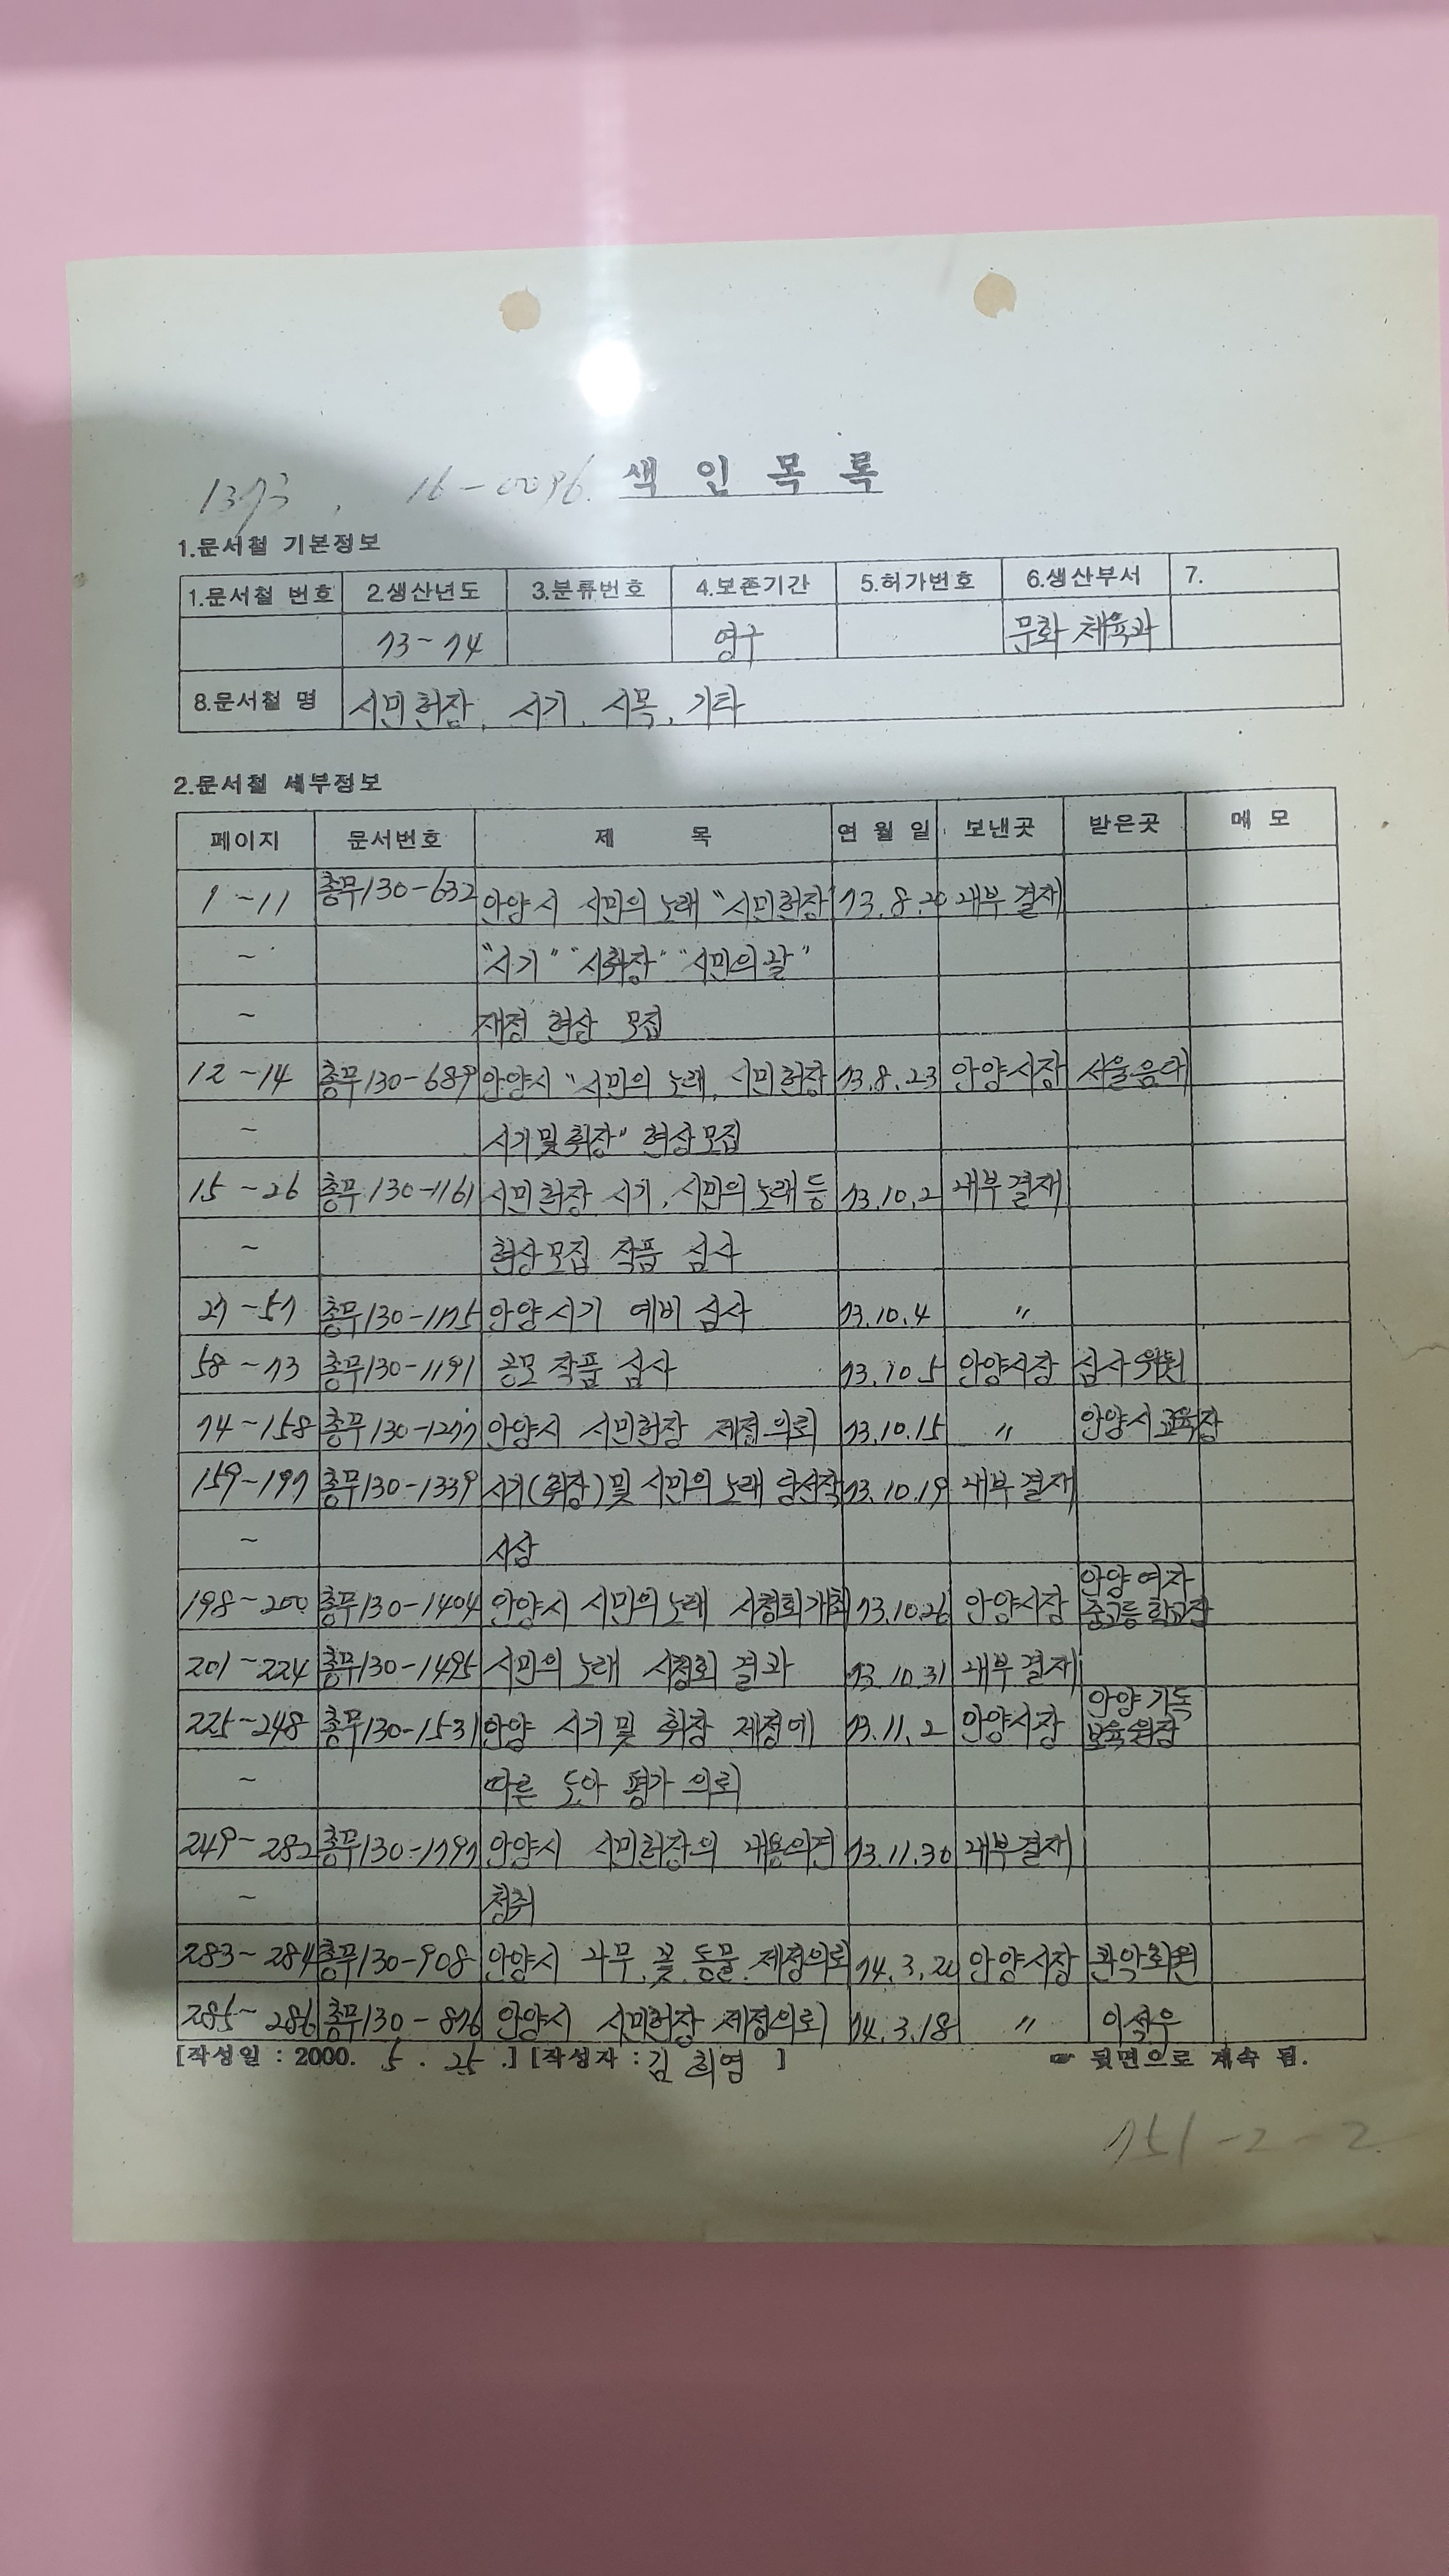 16-0096. 색 인 목 록
1.문서철 기본정보
1.문서철 번호 2.생산년도 3.분류번호 4.보존기간 5.허가번호 6.생산부서 7.
73~74 영구 문화체육과
8.문서철 명 시민헌장, 시기, 시목, 기타
2.문서철 세부정보
페이지 문서번호 제 목 연 월 일 보낸곳 받은곳 메 모
1~11 총무130-632 안양시 시민의 노래 "시민헌장" 73.8.20 내부결재
~ "시기" "시휘장" "시민의날"
~ 재정 현상 모집
12~14 총무130-689 안양시 "시민의 노래, 시민헌장 73.8.23 안양시장 서울음대
~ 시기및휘장" 현상모집
15~26 총무130-1161 시민헌장 시기, 시민의노래등 73.10.2 내부결재
~ 현상모집 작품 심사
27~57 총무130-1175 안양시기 예비심사 73.10.4 〃
58~73 총무130-1191 공모작품 심사 73.10.5 안양시장 심사위원
74~158 총무130-1277 안양시 시민헌장 제정의뢰 73.10.15 〃 안양시교육장
159~197 총무130-1339 시기(휘장)및 시민의 노래 당선작 73.10.19 내부결재
~ 시상
198~200 총무130-1404 안양시 시민의노래 시청회개최 73.10.26 안양시장 안양여자 중고등학교장
201~224 총무130-1495 시민의 노래 시청회 결과 73.10.31 내부결재
225~248 총무130-1531 안양 시기및 휘장 제정에 73.11.2 안양시장 안양기독 보육원장
~ 따른 도아 평가의뢰
249~282 총무130-1797 안양시 시민헌장의 내용의견 73.11.30 내부결재
~ 청취
283~284 총무130-908 안양시 나무, 꽃, 동물, 제정의뢰 74.3.20 안양시장 관악회원
285~286 총무130-876 안양시 시민헌장 제정의뢰 74.3.18 〃 이석우
[작성일 : 2000. 5. 25.] [작성자 : 김희영 ] ☞ 뒷면으로 계속 됨.
751-2-2